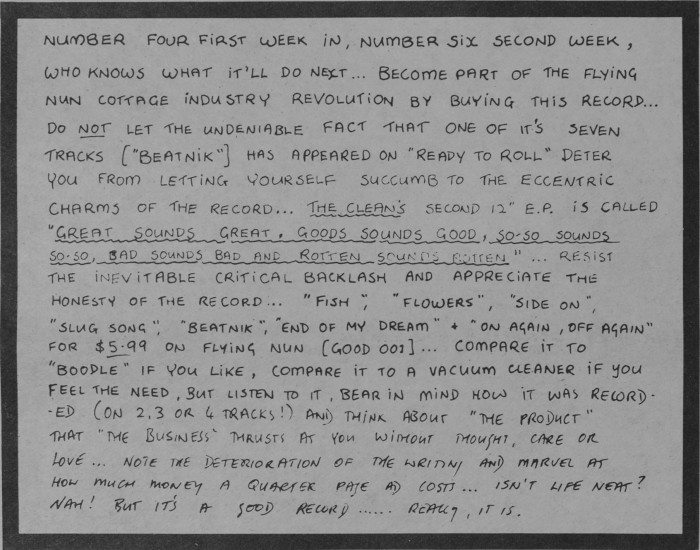 NUMBER FOUR FIRST WEEK IN, NUMBER SIX SECOND WEEK,
WHO KNOWS WHAT IT'LL DO NEXT... BECOME PART OF THE FLYING
NUN COTTAGE INDUSTRY REVOLUTION BY BUYING THIS RECORD...
DO NOT LET THE UNDENIABLE FACT THAT ONE OF IT'S SEVEN
TRACKS ["BEATNIK"] HAS APPEARED ON "READY TO ROLL" DETER
YOU FROM LETTING YOURSELF SUCCUMB TO THE ECCENTRIC
CHARMS OF THE RECORD... THE CLEAN'S SECOND 12" E.P. IS CALLED
"GREAT SOUNDS GREAT, GOODS SOUNDS GOOD, SO-SO SOUNDS
SO-SO, BAD SOUNDS BAD AND ROTTEN SOUNDS ROTTEN" ... RESIST
THE INEVITABLE CRITICAL BACKLASH AND APPRECIATE THE
HONESTY OF THE RECORD... "FISH", "FLOWERS", "SIDE ON",
"SLUG SONG", "BEATNIK", "END OF MY DREAM" + "ON AGAIN, OFF AGAIN"
FOR $5.99 ON FLYING NUN [GOOD 001]... COMPARE IT TO
"BOODLE" IF YOU LIKE, COMPARE IT TO A VACUUM CLEANER IF YOU
FEEL THE NEED, BUT LISTEN TO IT, BEAR IN MIND HOW IT WAS RECORD-
-ED (ON 2,3 OR 4 TRACKS!) AND THINK ABOUT "THE PRODUCT"
THAT "THE BUSINESS" THRUSTS AT YOU WITHOUT THOUGHT, CARE OR
LOVE... NOTE THE DETERIORATION OF THE WRITING AND MARVEL AT
HOW MUCH MONEY A QUARTER PAGE AD COSTS... ISN'T LIFE NEAT?
NAH! BUT IT'S A GOOD RECORD...... REALLY, IT IS.